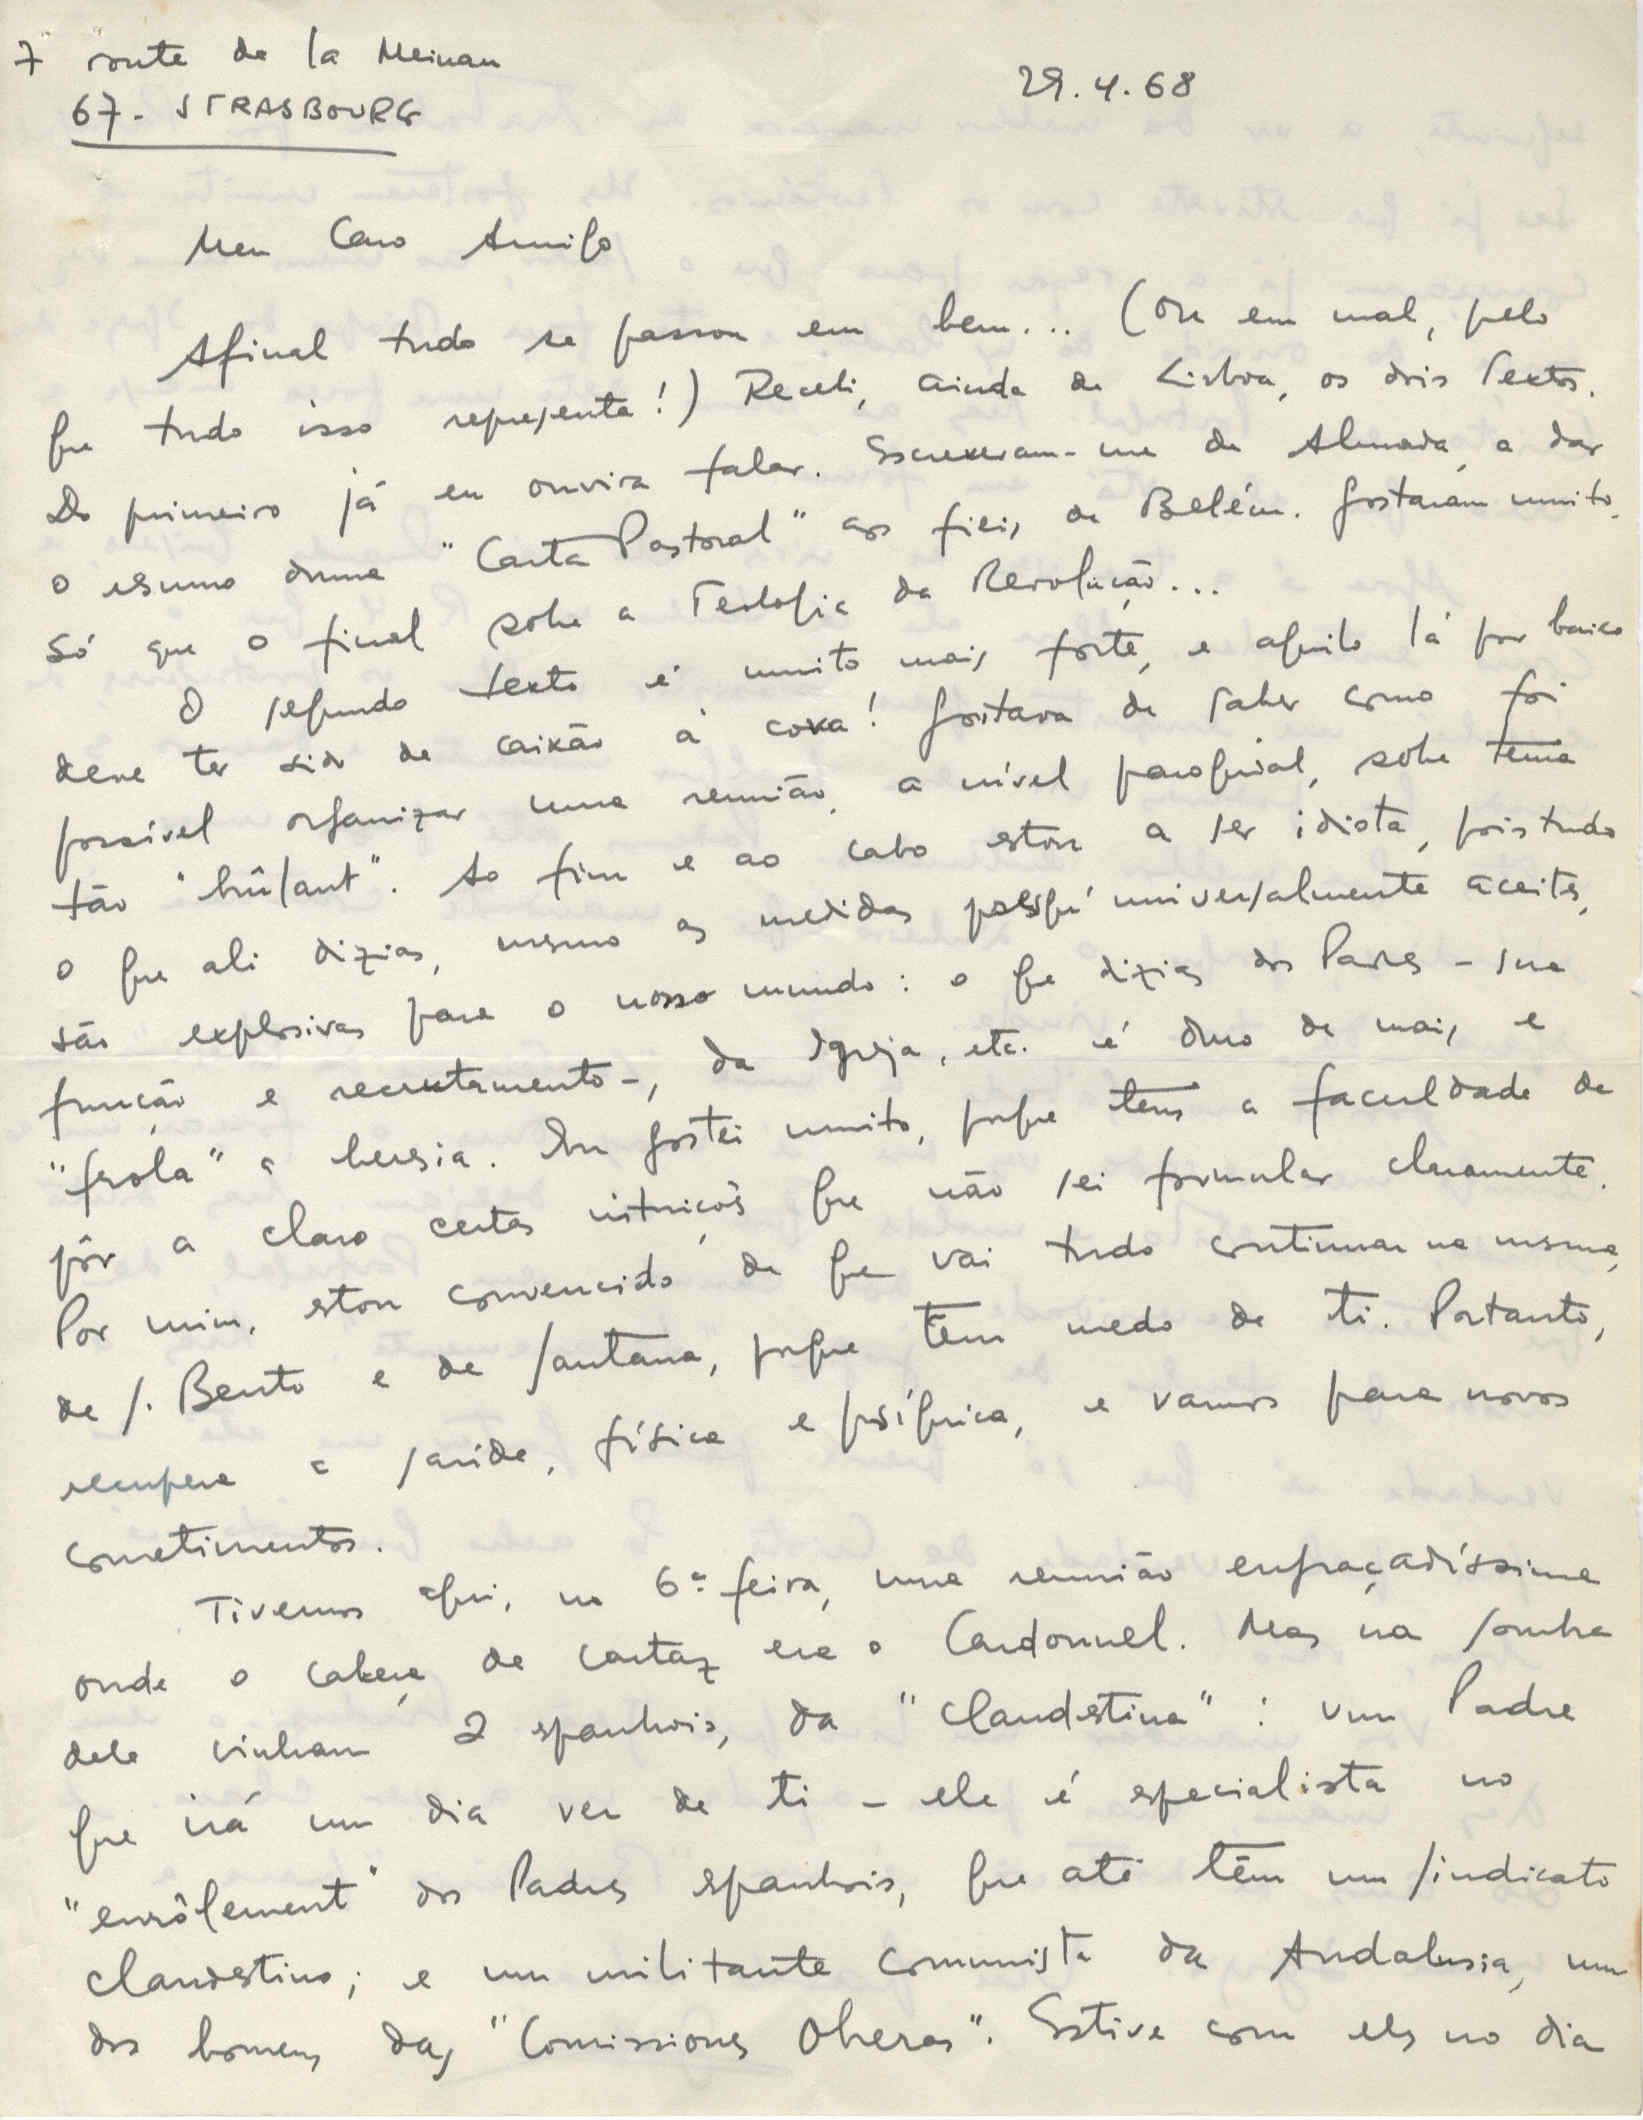 7 route de la Meinau
67 - STRASBOURG
29.4.68
Meu Caro Amigo
Afinal tudo se passou em bem... (Ou em mal, pelo
que tudo isso representa!) Recebi, ainda de Lisboa, os dois textos.
Do primeiro já eu ouvira falar. Escreveram-me de Almada, a dar
o resumo duma "Carta Pastoral" aos fieis de Belém. Gostaram muito.
Só que o final sobre a Teologia da Revolução...
O segundo texto é muito mais forte, e aquilo lá por baixo
deve ter sido de caixão à cova! Gostava de saber como foi
possível organizar uma reunião, a nível paroquial, sobre tema
tão "brûlant". Ao fim e ao cabo estou a ser idiota, pois tudo
o que ali dizias, mesmo as medidas universalmente aceites,
são explosivas para o nosso mundo: o que dizias dos Padres - sua
função e recrutamento -, da Igreja, etc. é duro de mais, e
"frôla" a heresia. Eu gostei muito, porque tens a faculdade de
pôr a claro certas intuições que não sei formular claramente.
Por mim, estou convencido de que vai tudo continuar na mesma,
de S. Bento e de Santana, porque têm medo de ti. Portanto,
recupera a saúde, física e psíquica, e vamos para novos
cometimentos.
Tivemos aqui, na 6ª feira, uma reunião engraçadíssima
onde o cabeça de cartaz era o Cardonnel. Mas na sombra
dele vinham 2 espanhois, da "clandestina": um Padre
que irá um dia ver de ti - ele é especialista no
"enrôlement" dos Padres espanhois, que até têm um sindicato
clandestino; e um militante comunista da Andalusia, um
dos homens das "Comissiones Oberas". Estive com eles no dia